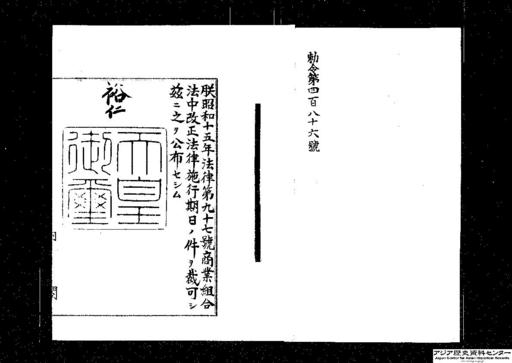 勅令第四百八十六號
朕昭和十五年法律第九十七號商業組合
法中改正法律施行期日ノ件ヲ裁可シ
茲ニ之ヲ公布セシム
裕仁
天皇
御璽
内
閣
アジア歴史資料センター
Japan Center for Asian Historical Records